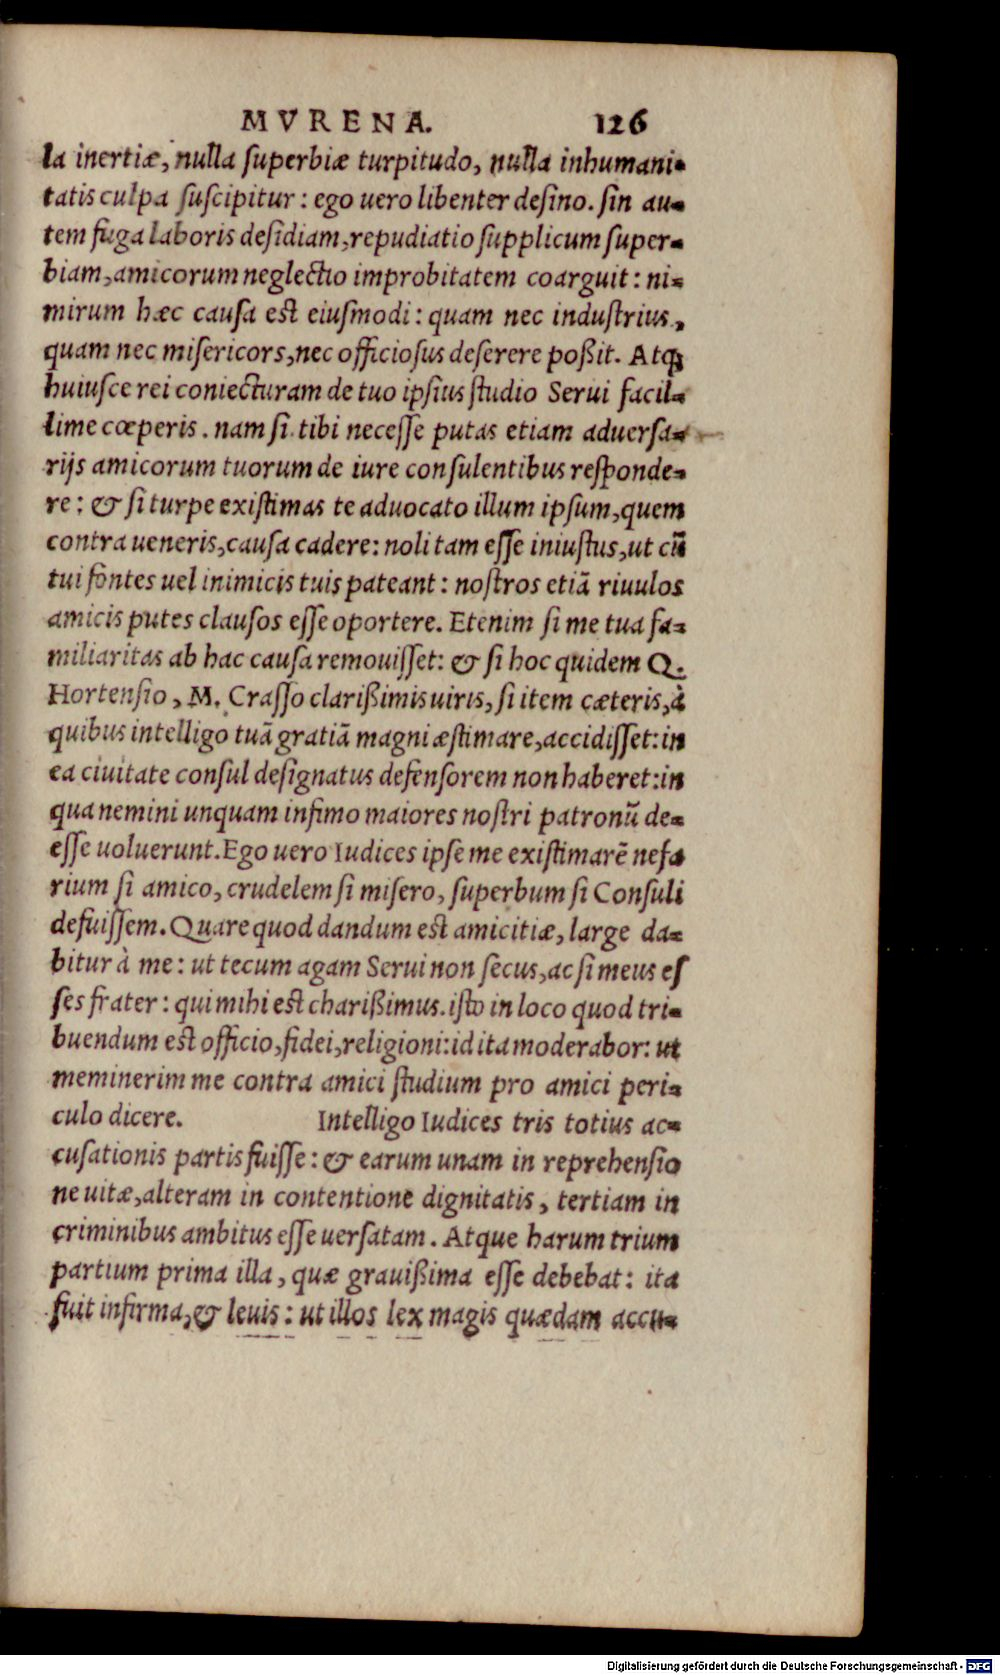 MVRENA. 126
la inertiæ, nulla ſuperbiæ turpitudo, nulla inhumani-
tatis culpa ſuſcipitur: ego uero libenter deſino. ſin au-
tem fuga laboris deſidiam, repudiatio ſupplicum ſuper-
biam, amicorum neglectio improbitatem coarguit: ni-
mirum hæc cauſa eſt eiuſmodi: quam nec induſtrius,
quam nec miſericors, nec officioſus deſerere poßit. Atq;
huiuſce rei coniecturam de tuo ipſius ſtudio Serui facil-
lime cœperis. nam ſi tibi neceſſe putas etiam aduerſa-
rijs amicorum tuorum de iure conſulentibus reſponde-
re: & ſi turpe exiſtimas te aduocato illum ipſum, quem
contra ueneris, cauſa cadere: noli tam eſſe iniuſtus, ut cũ
tui fontes uel inimicis tuis pateant: noſtros etiã riuulos
amicis putes clauſos eſſe oportere. Etenim ſi me tua fa-
miliaritas ab hac cauſa remouiſſet: & ſi hoc quidem Q.
Hortenſio, M. Craſſo clarißimis uiris, ſi item cæteris, à
quibus intelligo tuã gratiã magni æſtimare, accidiſſet: in
ea ciuitate conſul deſignatus defenſorem non haberet: in
qua nemini unquam infimo maiores noſtri patronũ de-
eſſe uoluerunt. Ego uero Iudices ipſe me exiſtimarẽ nefa
rium ſi amico, crudelem ſi miſero, ſuperbum ſi Conſuli
defuiſſem. Quare quod dandum eſt amicitiæ, large da-
bitur à me: ut tecum agam Serui non ſecus, ac ſi meus eſ
ſes frater: qui mihi eſt charißimus. iſto in loco quod tri-
buendum eſt officio, fidei, religioni: id ita moderabor: ut
meminerim me contra amici ſtudium pro amici peri-
culo dicere. Intelligo Iudices tris totius ac-
cuſationis partis fuiſſe: & earum unam in reprehenſio
ne uitæ, alteram in contentione dignitatis, tertiam in
criminibus ambitus eſſe uerſatam. Atque harum trium
partium prima illa, quæ grauißima eſſe debebat: ita
fuit infirma, & leuis: ut illos lex magis quædam accu-
Digitalisierung gefördert durch die Deutsche Forschungsgemeinschaft - DFG